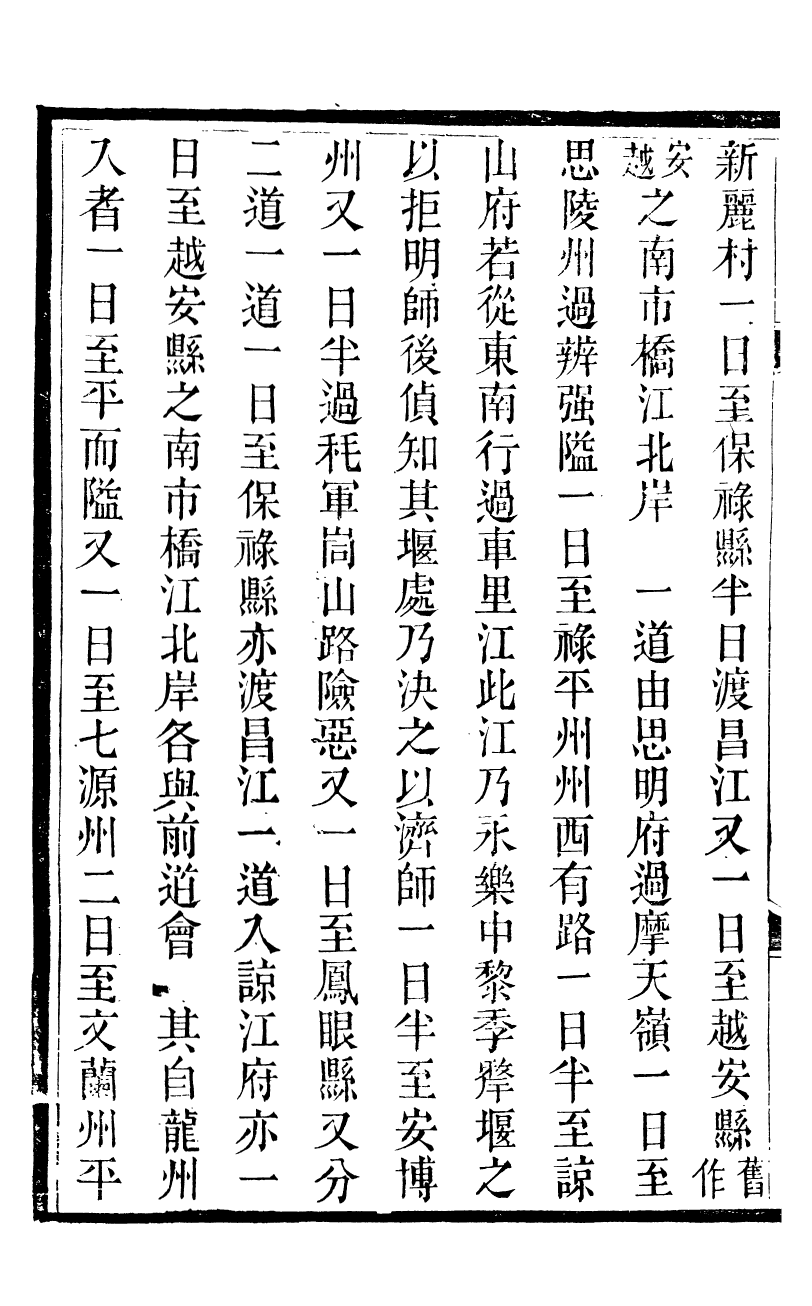 新麗村一日至保祿縣半日渡昌江又一日至越安縣舊作
安越之南市橋江北岸　一道由思明府過摩天嶺一日至
思陵州過辨强隘一日至祿平州州西有路一日半至諒
山府若從東南行過車里江此江乃永樂中黎季犛堰之
以拒明師後偵知其堰處乃決之以濟師一日半至安博
州又一日半過秏軍峝山路險惡又一日至鳳眼縣又分
二道一道一日至保祿縣亦渡昌江一道入諒江府亦一
日至越安縣之南市橋江北岸各與前道會　其自龍州
入者一日至平而隘又一日至七源州二日至文蘭州平